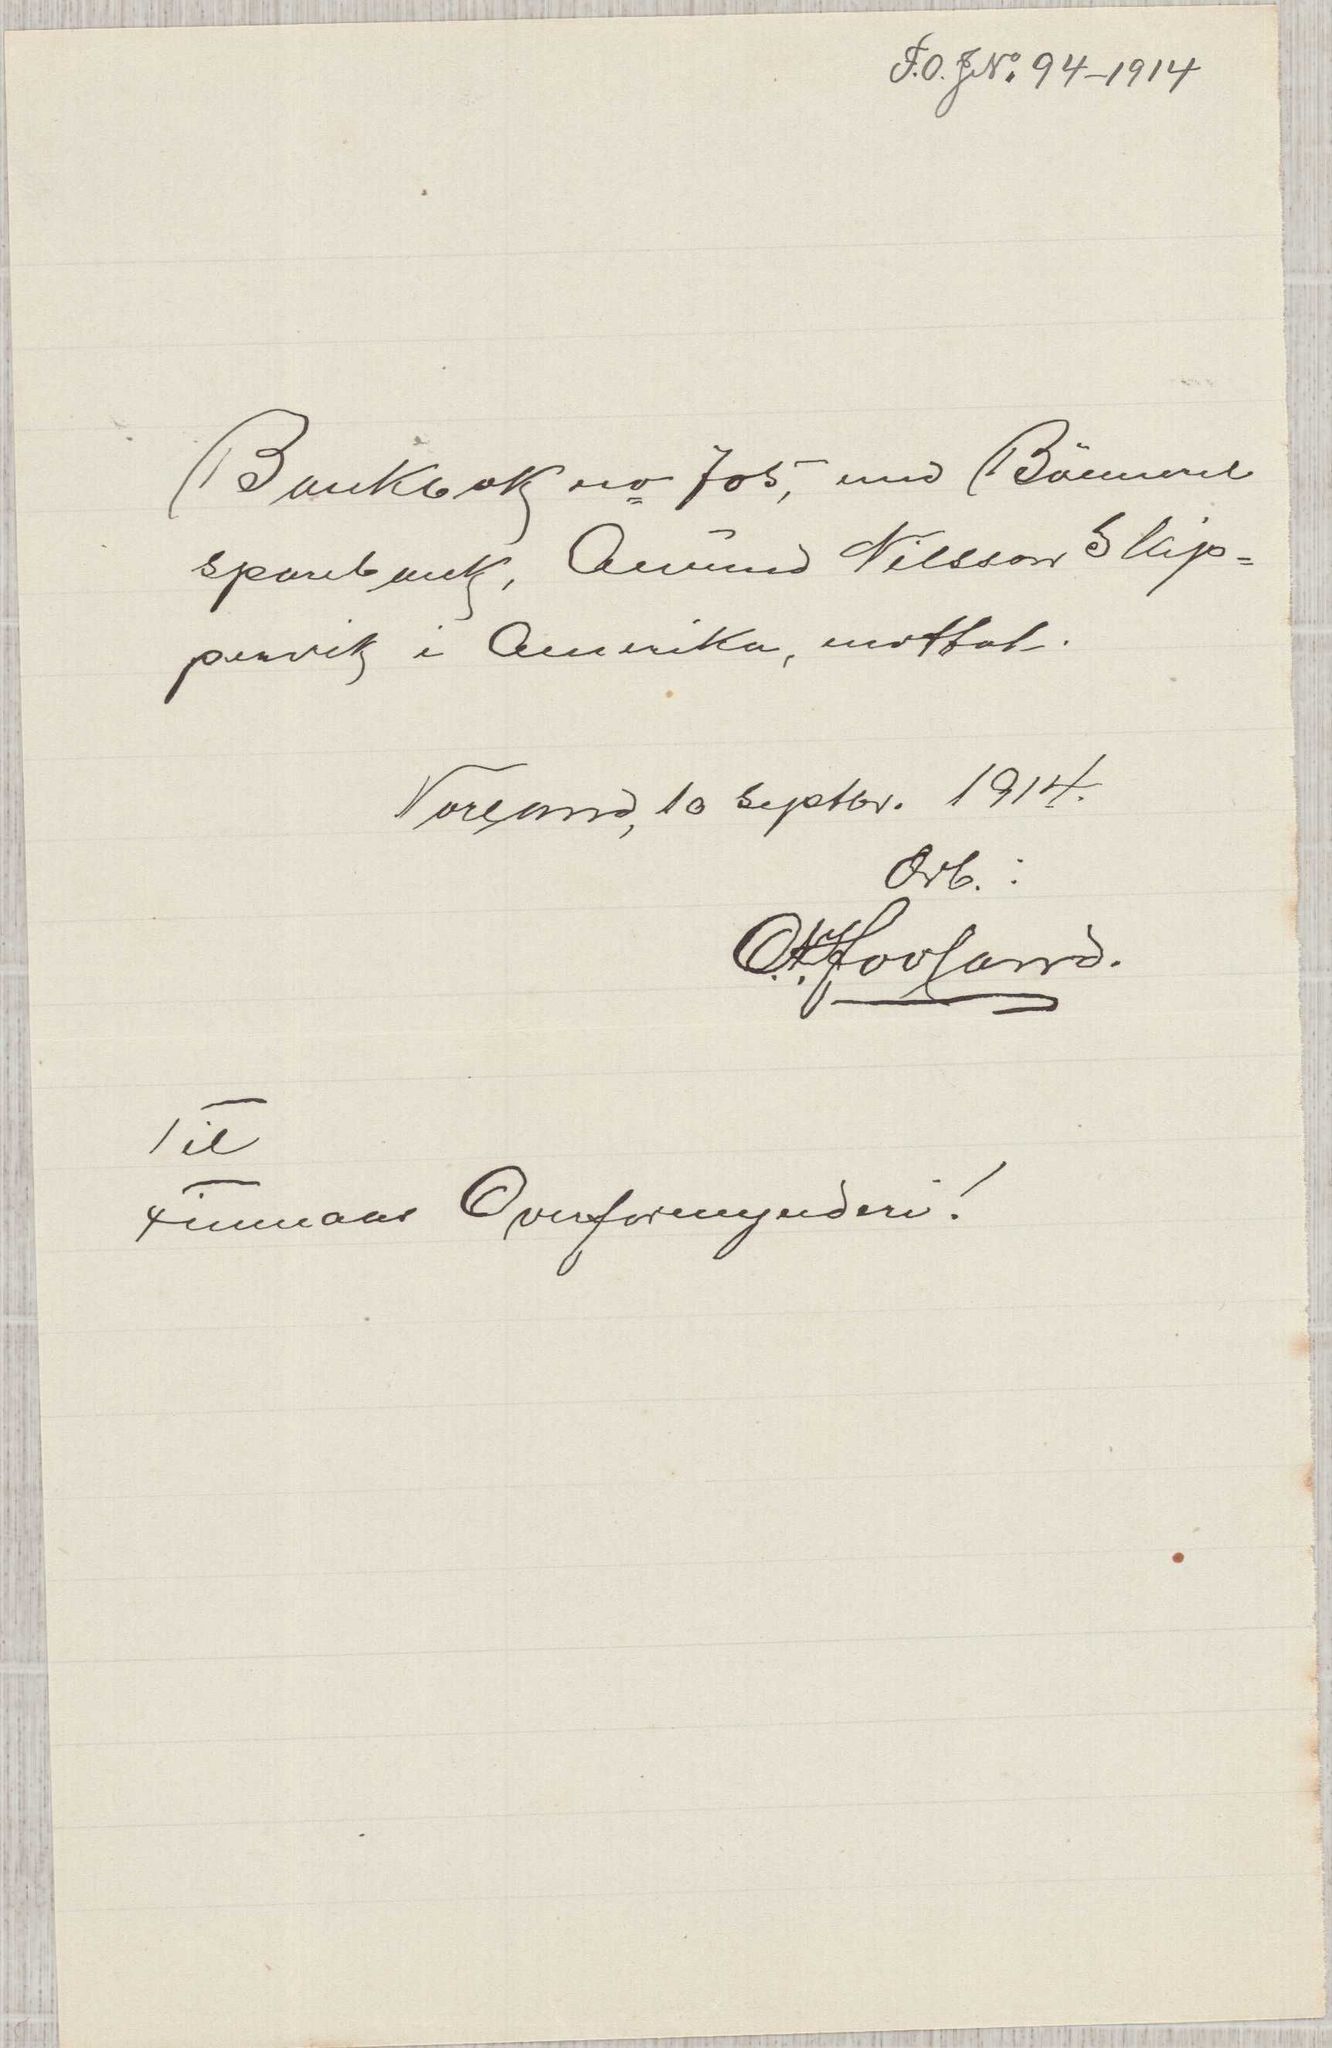 F.O.J.No. 94-1914
Bankbok no 705, med Bömmel
sparebank, Amund Nilsson Skip=
pervik i Amerika, mottat.
Vorland, 10 Septbr. 1914.
Ørb. :
O.A. Hovland.
Til
Finnaas Overformynderi!